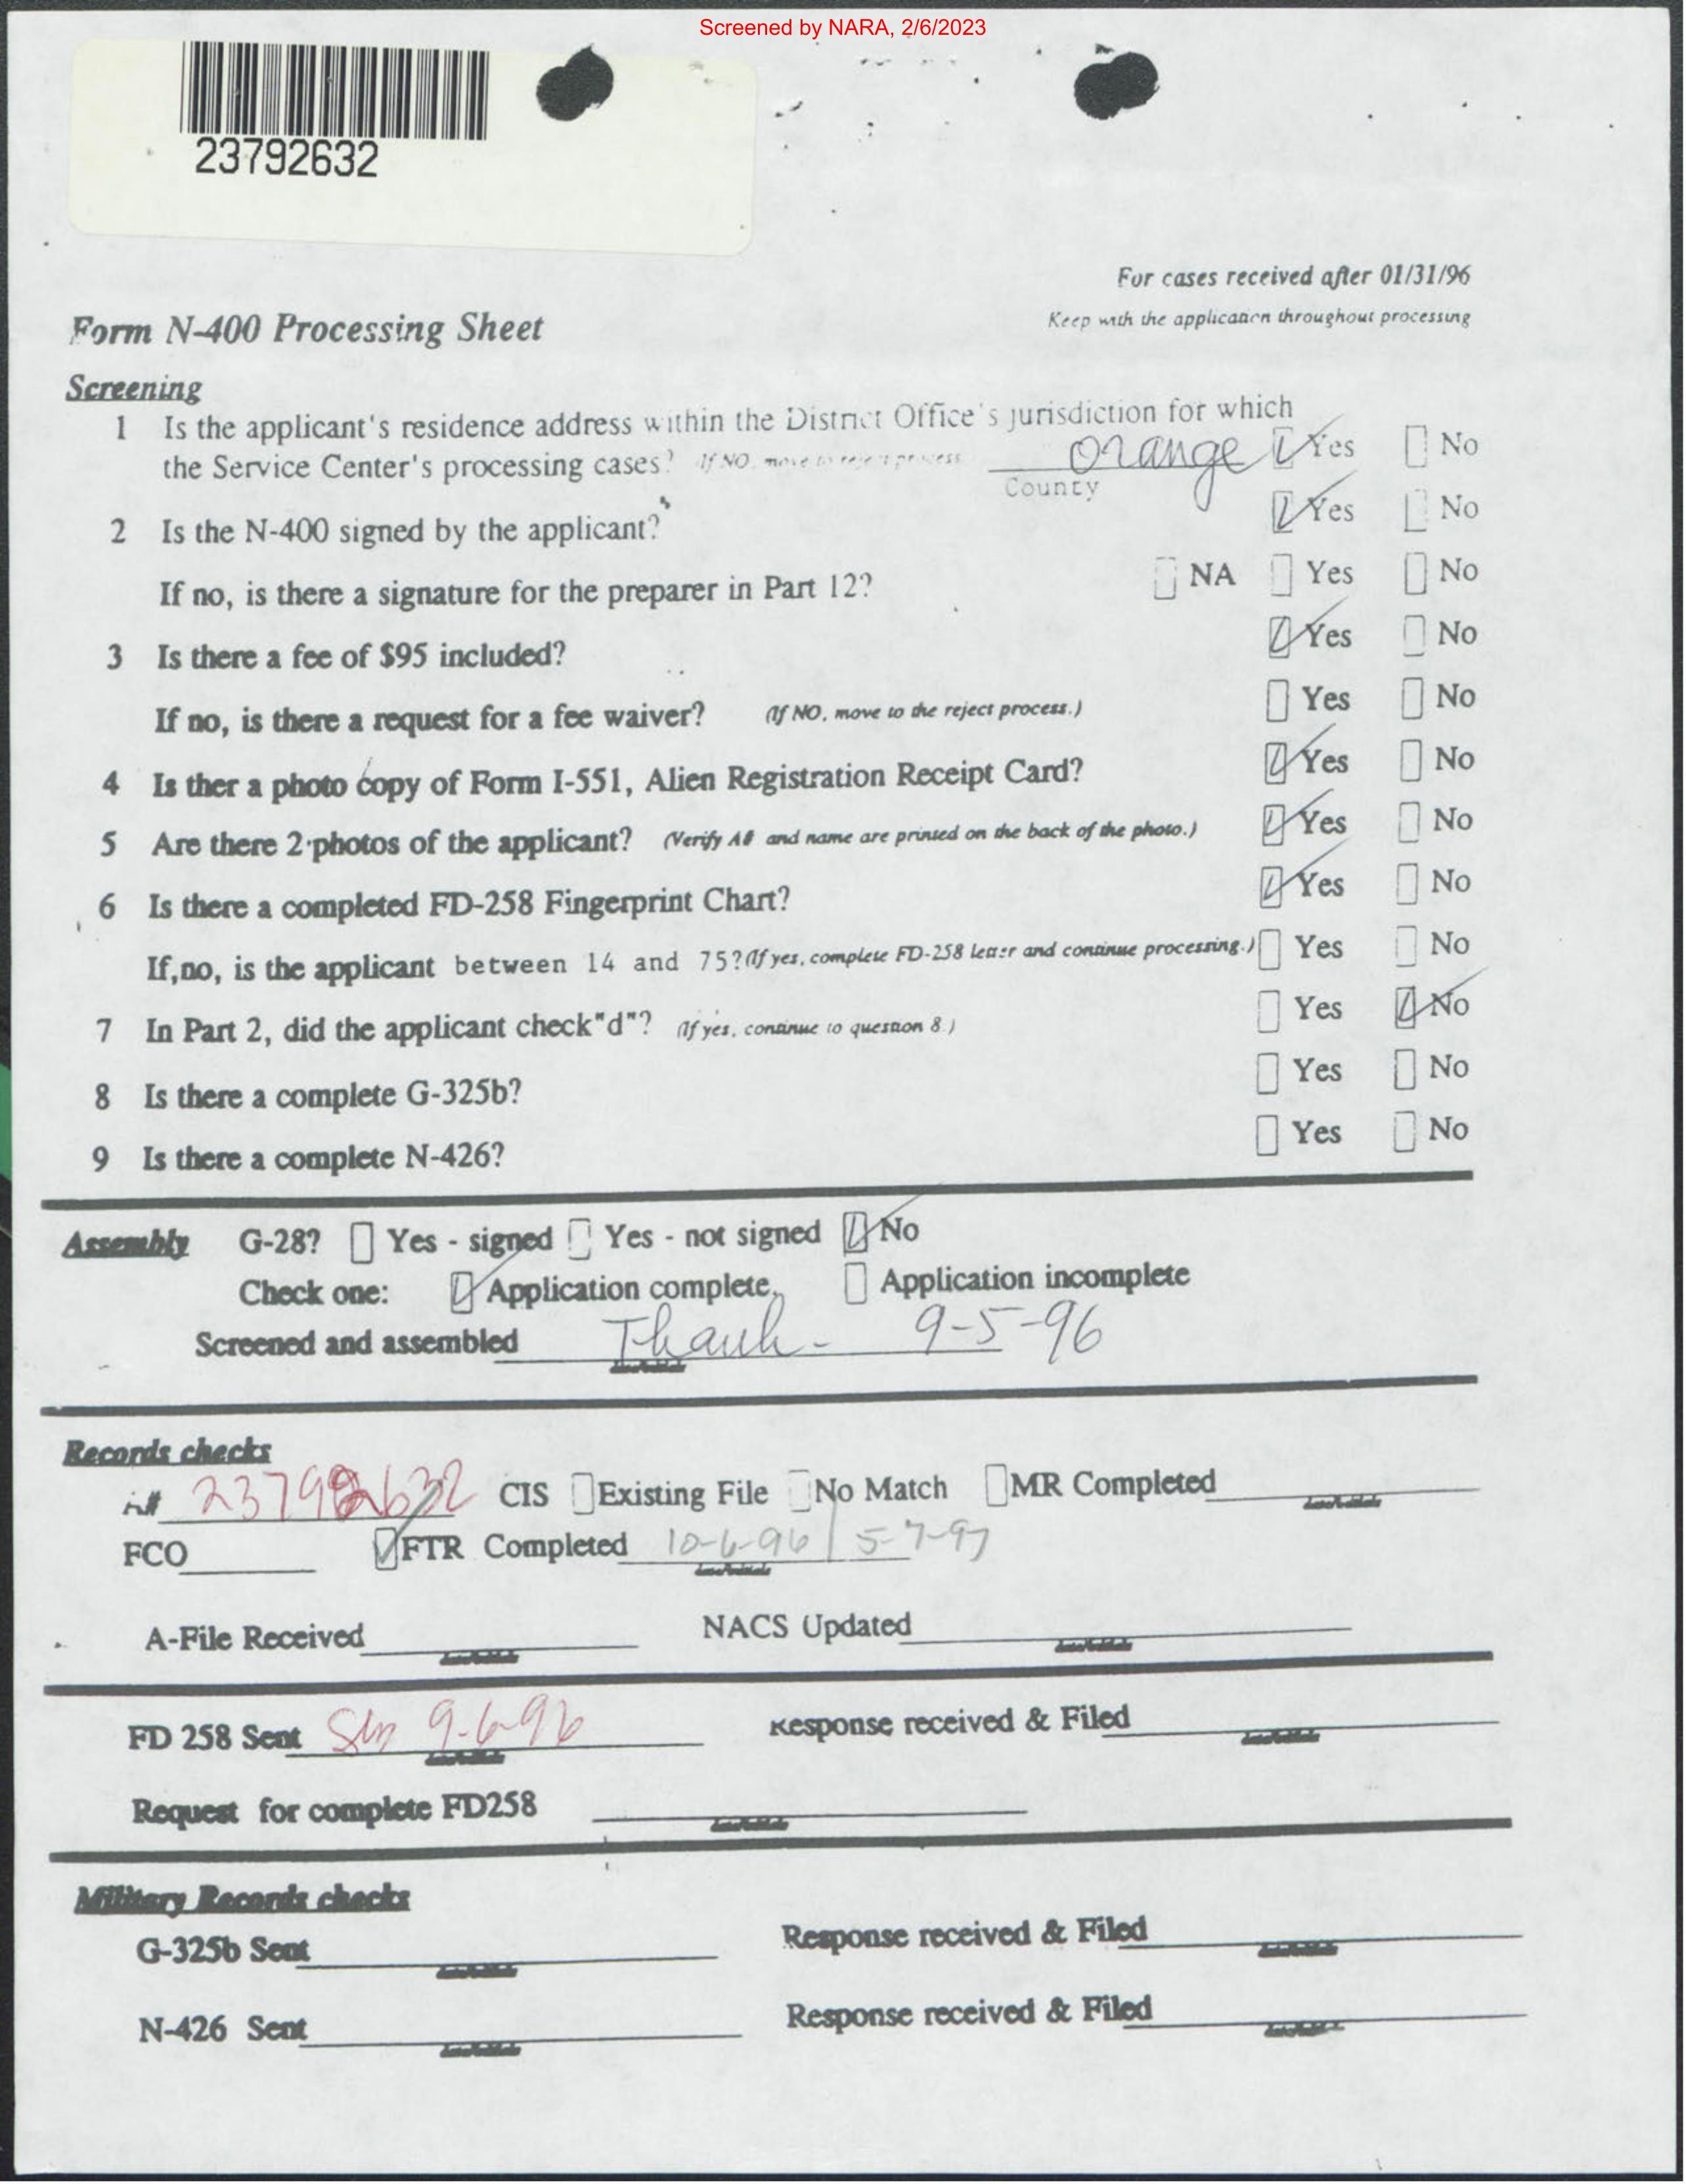 Screened by NARA, 2/6/2023
23792632
For cases received after 01/31/96
Keep with the application throughout processing
Form N-400 Processing Sheet
Screening
1 Is the applicant's residence address within the District Office's jurisdiction for which
the Service Center's processing cases? If NO, move to reject process. Orange Yes No
County
2 Is the N-400 signed by the applicant? Yes No
If no, is there a signature for the preparer in Part 12? NA Yes No
3 Is there a fee of $95 included? Yes No
If no, is there a request for a fee waiver? (If NO, move to the reject process.) Yes No
4 Is ther a photo copy of Form I-551, Alien Registration Receipt Card? Yes No
5 Are there 2 photos of the applicant? (Verify A# and name are printed on the back of the photo.) Yes No
6 Is there a completed FD-258 Fingerprint Chart? Yes No
If,no, is the applicant between 14 and 75?(If yes, complete FD-258 letter and continue processing.) Yes No
7 In Part 2, did the applicant check"d"? (If yes, continue to question 8.) Yes No
8 Is there a complete G-325b? Yes No
9 Is there a complete N-426? Yes No
Assembly G-28? Yes - signed Yes - not signed No
Check one: Application complete. Application incomplete
Screened and assembled Thanh - 9-5-96
Records checks
A# 23792632 CIS Existing File No Match MR Completed
FCO FTR Completed 10-6-96 | 5-7-97
A-File Received NACS Updated
FD 258 Sent 9-6-96 Response received & Filed
Request for complete FD258
Military Records checks
G-325b Sent Response received & Filed
N-426 Sent Response received & Filed